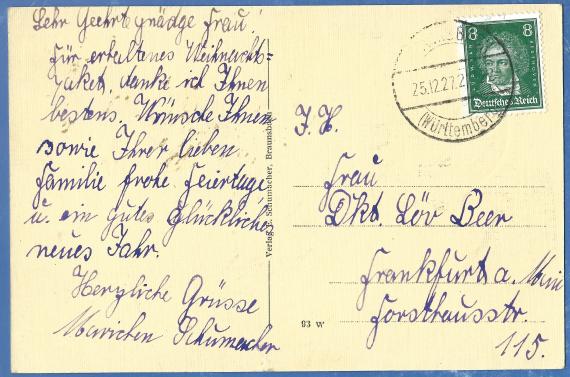 Sehr Geehrt gnädge Frau!
für erhaltenes Weihnachts=
paket, danke ich Ihnen
bestens. Wünsche Ihnen
sowie Ihrer lieben
Familie frohe Feiertage
u. ein gutes Glückliches
neues Jahr.
Herzliche Grüsse
Mariechen Schumacher
Verlag v. Schumacher, Braunsb
93 W
8 8
Deutsches Reich
25.12.27.2
(Württemberg)
I. H.
Frau
Dkt. Löv Beer
Frankfurt a. Main
Forsthausstr.
115.